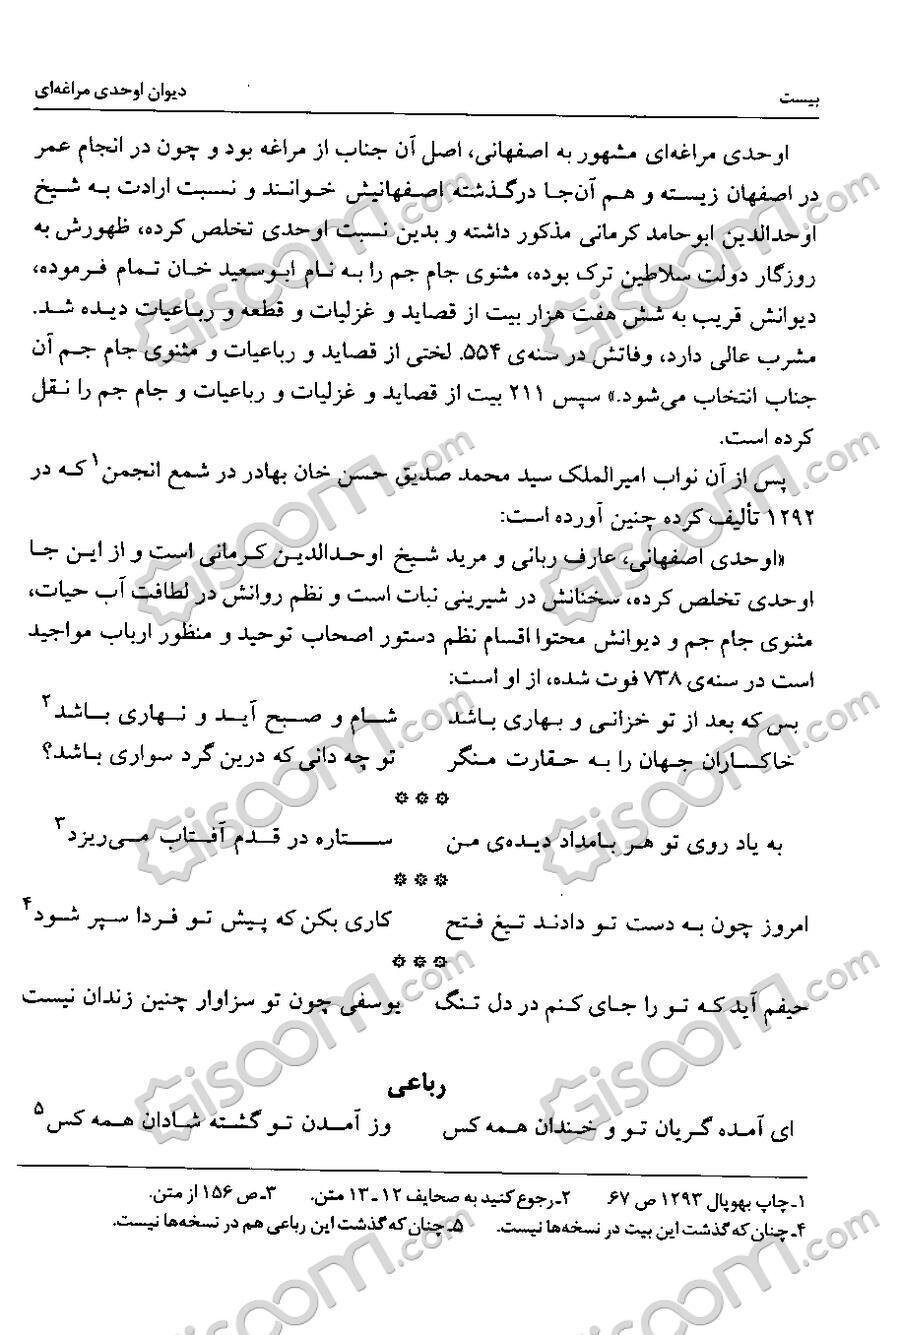 بیست
دیوان اوحدی مراغه‌ای
اوحدی مراغه‌ای مشهور به اصفهانی، اصل آن جناب از مراغه بود و چون در انجام عمر
در اصفهان زیسته و هم آن‌جا درگذشته اصفهانیش خوانند و نسبت ارادت به شیخ
اوحدالدین ابوحامد کرمانی مذکور داشته و بدین نسبت اوحدی تخلص کرده، ظهورش به
روزگار دولت سلاطین ترک بوده، مثنوی جام جم را به نام ابوسعید خان تمام فرموده،
دیوانش قریب به شش هفت هزار بیت از قصاید و غزلیات و قطعه و رباعیات دیده شد.
مشرب عالی دارد، وفاتش در سنه‌ی ۵۵۴. لختی از قصاید و رباعیات و مثنوی جام جم آن
جناب انتخاب می‌شود.» سپس ۲۱۱ بیت از قصاید و غزلیات و رباعیات و جام جم را نقل
کرده است.
پس از آن نواب امیرالملک سید محمد صدیق حسن خان بهادر در شمع انجمن۱ که در
۱۲۹۲ تألیف کرده چنین آورده است:
«اوحدی اصفهانی، عارف ربانی و مرید شیخ اوحدالدین کرمانی است و از این جا
اوحدی تخلص کرده، سخنانش در شیرینی نبات است و نظم روانش در لطافت آب حیات،
مثنوی جام جم و دیوانش محتوا اقسام نظم دستور اصحاب توحید و منظور ارباب مواجید
است در سنه‌ی ۷۳۸ فوت شده، از او است:
بس که بعد از تو خزانی و بهاری باشد شام و صبح آید و نهاری باشد۲
خاکساران جهان را به حقارت منگر تو چه دانی که درین گرد سواری باشد؟
***
به یاد روی تو هر بامداد دیده‌ی من ستاره در قدم آفتاب می‌ریزد۳
***
امروز چون به دست تو دادند تیغ فتح کاری بکن که پیش تو فردا سپر شود۴
***
حیفم آید که تو را جای کنم در دل تنگ یوسفی چون تو سزاوار چنین زندان نیست
رباعی
ای آمده گریان تو و خندان همه کس وز آمدن تو گشته شادان همه کس۵
۱ـ چاپ بهوپال ۱۲۹۳ ص ۶۷. ۲ـ رجوع کنید به صحایف ۱۲ ـ ۱۳ متن. ۳ـ ص ۱۵۶ از متن.
۴ـ چنان که گذشت این بیت در نسخه‌ها نیست. ۵ـ چنان که گذشت این رباعی هم در نسخه‌ها نیست.
Giscoom.com
Giscoom.com
Giscoom.com
Giscoom.com
Giscoom.com
Giscoom.com
Giscoom.com
Giscoom.com
Giscoom.com
Giscoom.com